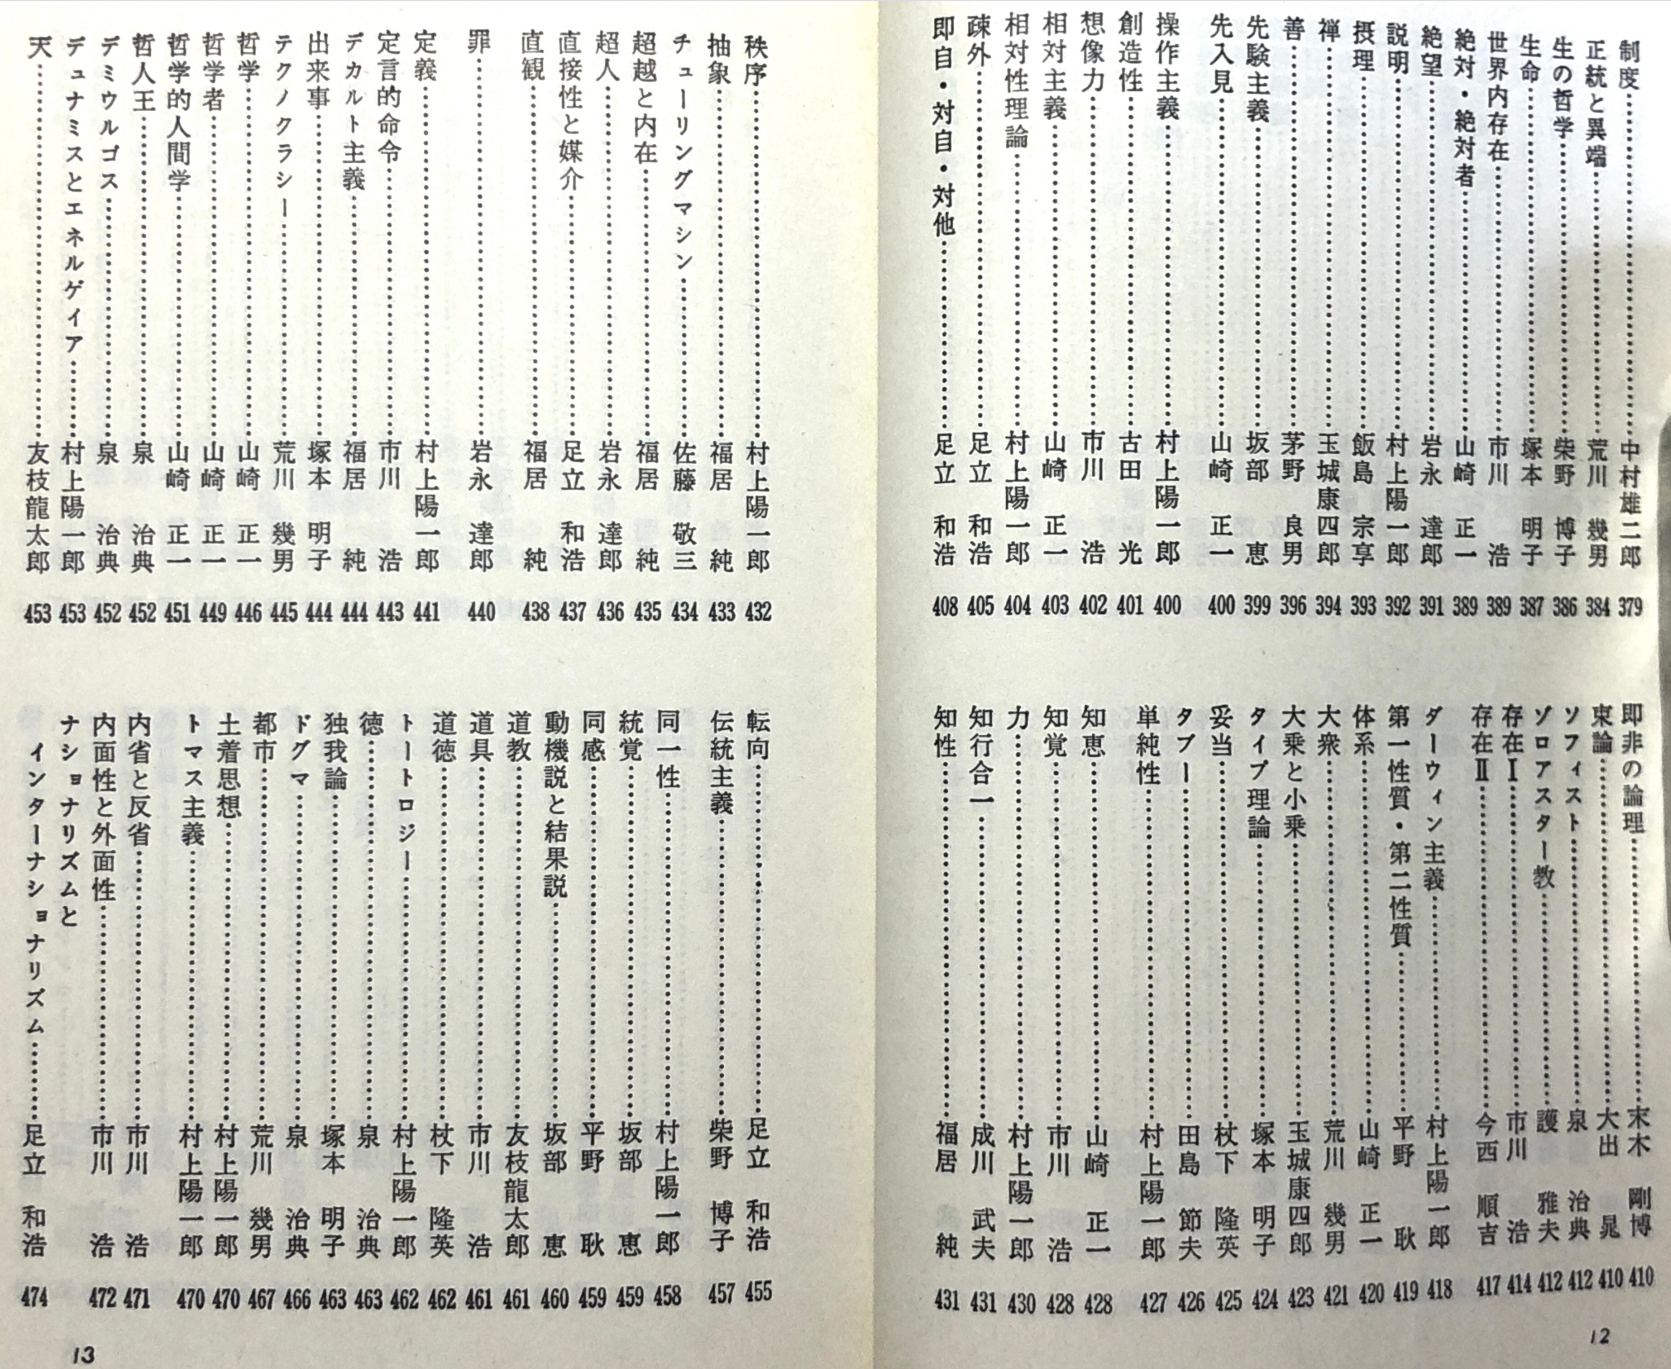 制度……中村雄二郎 379
正統と異端……荒川 幾男 384
生の哲学……柴野 博子 386
生命……塚本 明子 387
世界内存在……市川 浩 389
絶対・絶対者……山崎 正一 389
絶望……岩永 達郎 391
説明……村上陽一郎 392
摂理……飯島 宗享 393
禅……玉城康四郎 394
善……茅野 良男 396
先験主義……坂部 恵 399
先入見……山崎 正一 400
操作主義……村上陽一郎 400
創造性……古田 光 401
想像力……市川 浩 402
相対主義……山崎 正一 403
相対性理論……村上陽一郎 404
疎外……足立 和浩 405
即自・対自・対他……足立 和浩 408
即非の論理……末木 剛博 410
東論……大出 晁 410
ソフィスト……泉 治典 412
ゾロアスター教……護 雅夫 412
存在Ⅰ……市川 浩 414
存在Ⅱ……今西 順吉 417
ダーウィン主義……村上陽一郎 418
第一性質・第二性質……平野 耿 419
体系……山崎 正一 420
大衆……荒川 幾男 421
大乗と小乗……玉城康四郎 423
タイプ理論……塚本 明子 424
妥当……杖下 隆英 425
タブー……田島 節夫 426
単純性……村上陽一郎 427
知恵……山崎 正一 428
知覚……市川 浩 428
力……村上陽一郎 430
知行合一……成川 武夫 431
知性……福居 純 431
12
秩序……村上陽一郎 432
抽象……福居 純 433
チューリングマシン……佐藤 敬三 434
超越と内在……福居 純 435
超人……岩永 達郎 436
直接性と媒介……足立 和浩 437
直観……福居 純 438
罪……岩永 達郎 440
定義……村上陽一郎 441
定言的命令……市川 浩 443
デカルト主義……福居 純 444
出来事……塚本 明子 444
テクノクラシー……荒川 幾男 445
哲学……山崎 正一 446
哲学者……山崎 正一 449
哲学的人間学……山崎 正一 451
哲人王……泉 治典 452
デミウルゴス……泉 治典 452
デュナミスとエネルゲイア……村上陽一郎 453
天……友枝龍太郎 453
転向……足立 和浩 455
伝統主義……柴野 博子 457
同一性……村上陽一郎 458
統覚……坂部 恵 459
同感……平野 耿 459
動機説と結果説……坂部 恵 460
道教……友枝龍太郎 461
道具……市川 浩 461
道徳……杖下 隆英 462
トートロジー……村上陽一郎 462
徳……泉 治典 463
独我論……塚本 明子 463
ドグマ……泉 治典 466
都市……荒川 幾男 467
土着思想……村上陽一郎 470
トマス主義……村上陽一郎 470
内省と反省……市川 浩 471
内面性と外面性……市川 浩 472
ナショナリズムと
インターナショナリズム……足立 和浩 474
13